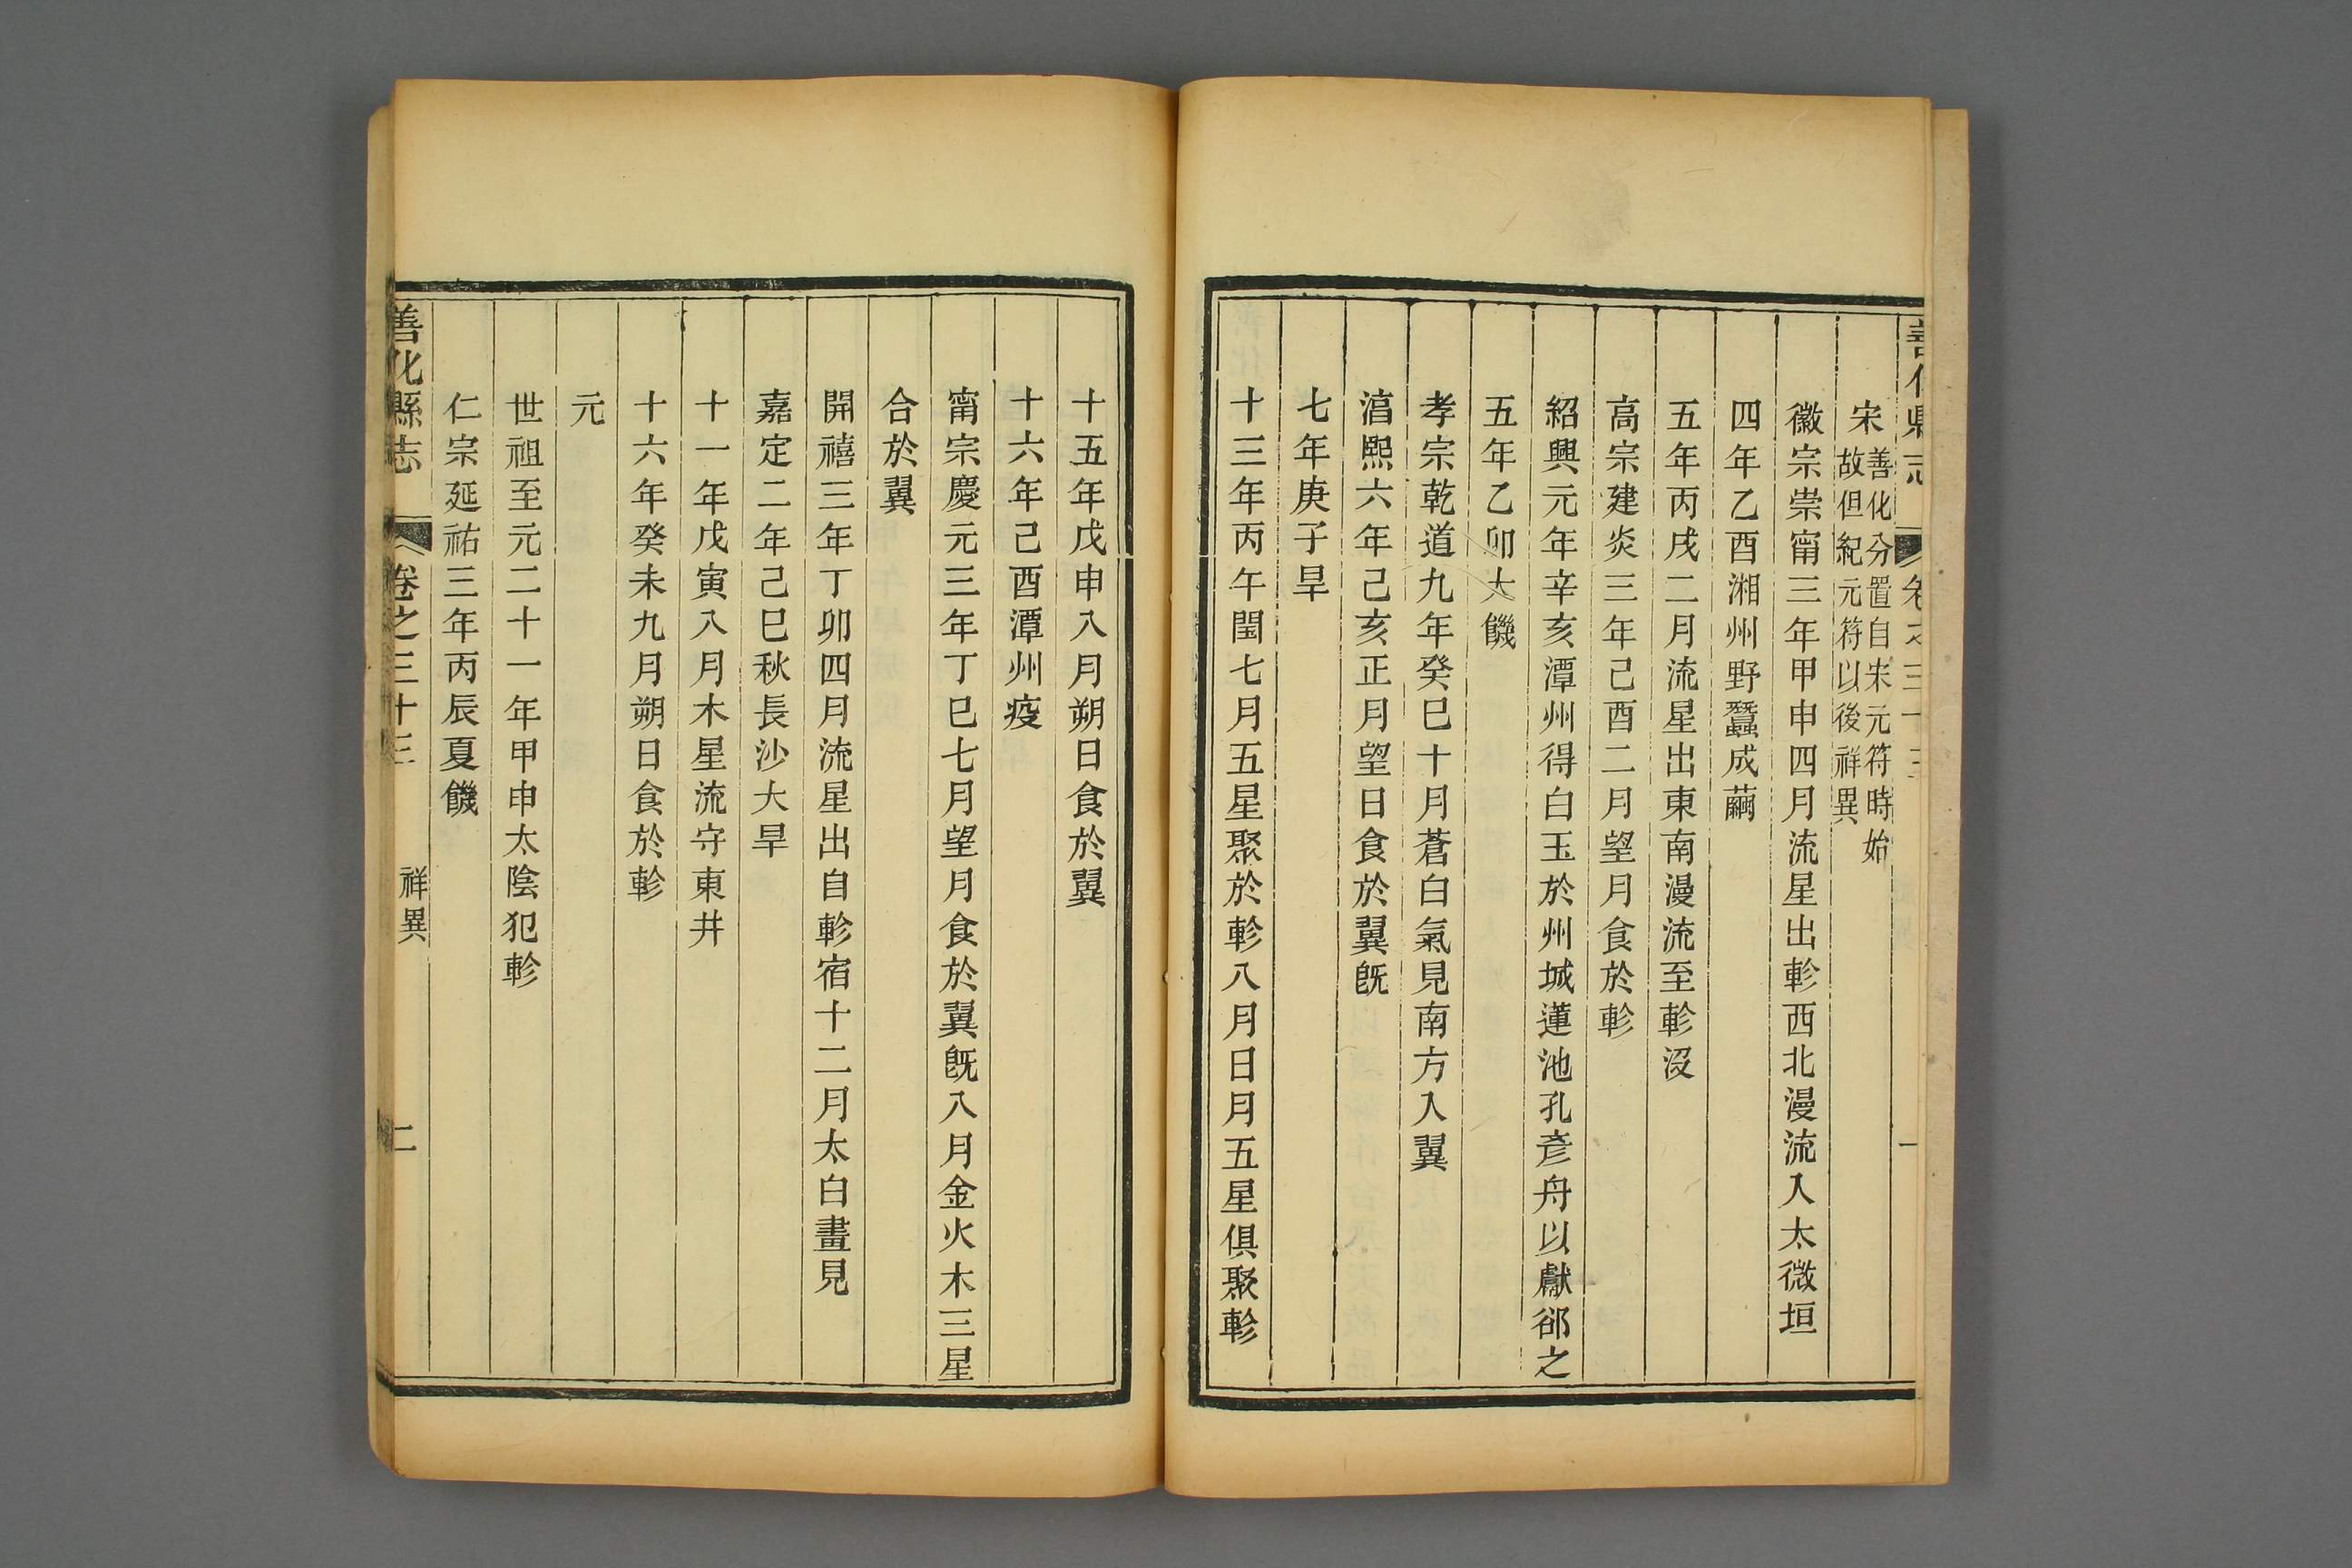 善化縣志 卷之三十三 一
宋 善化分置自宋元符時始
故但紀元符以後祥異
徽宗崇甯三年甲申四月流星出軫西北漫流入太微垣
四年乙酉湘州野蠶成繭
五年丙戌二月流星出東南漫流至軫沒
高宗建炎三年己酉二月望月食於軫
紹興元年辛亥潭州得白玉於州城蓮池孔彥舟以獻郤之
五年乙卯大饑
孝宗乾道九年癸巳十月蒼白氣見南方入翼
湻熙六年己亥正月望日食於翼旣
七年庚子旱
十三年丙午閏七月五星聚於軫八月日月五星俱聚軫
十五年戊申八月朔日食於翼
十六年己酉潭州疫
甯宗慶元三年丁巳七月望月食於翼旣八月金火木三星
合於翼
開禧三年丁卯四月流星出自軫宿十二月太白晝見
嘉定二年己巳秋長沙大旱
十一年戊寅八月木星流守東井
十六年癸未九月朔日食於軫
元
世祖至元二十一年甲申太陰犯軫
仁宗延祐三年丙辰夏饑
善化縣志 卷之三十三 祥異 二